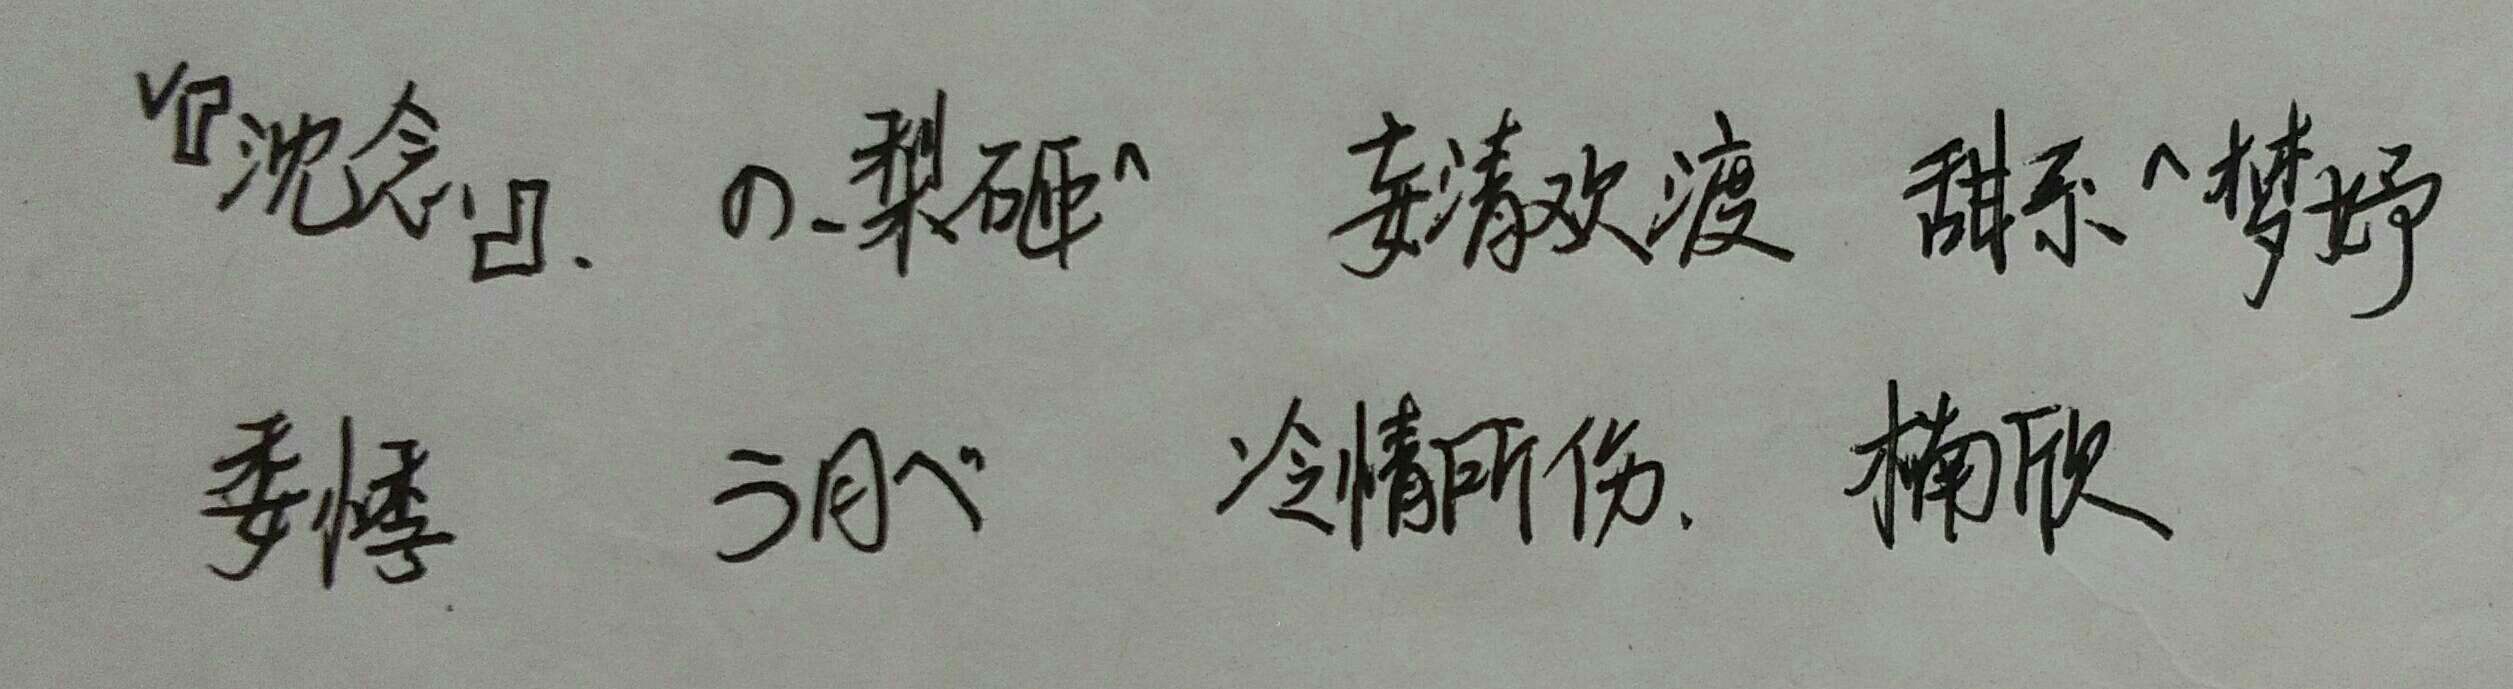 √『沈念』. の-梨砸^ 妾清欢渡 甜系^梦妤
委悸 う月べ 冷情所伤. 楠欣